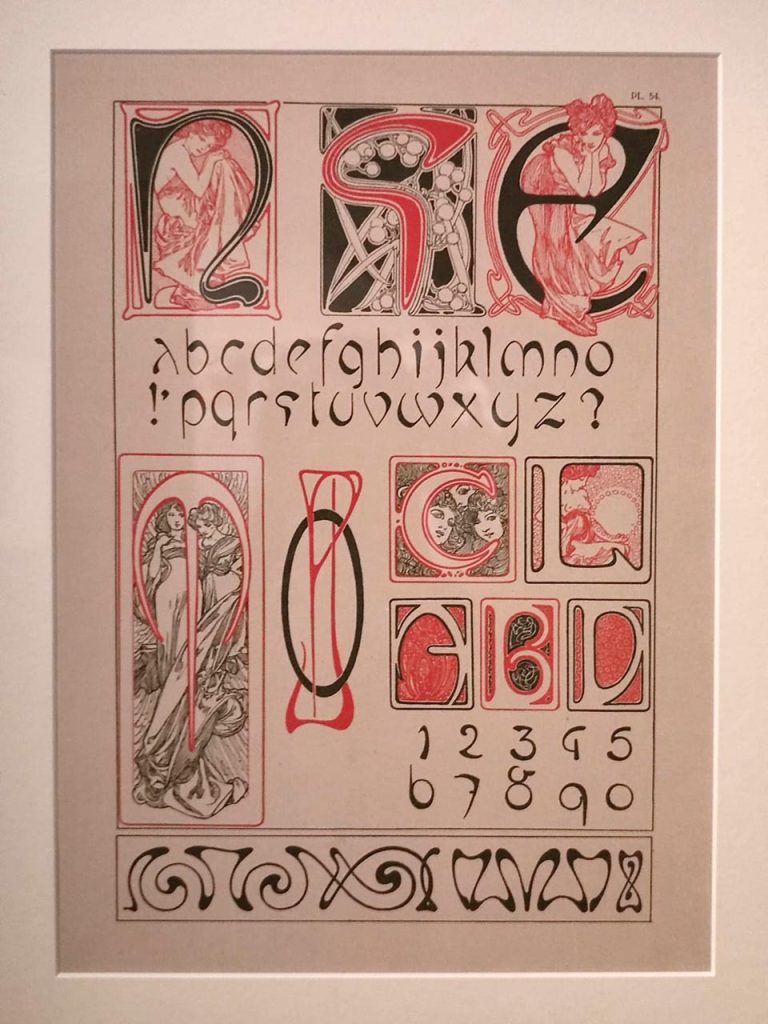 PL. 54.
n S E
abcdefghijklmno
!'pqrstuvwxyz?
C L
A B D
1 2 3 4 5
6 7 8 9 0